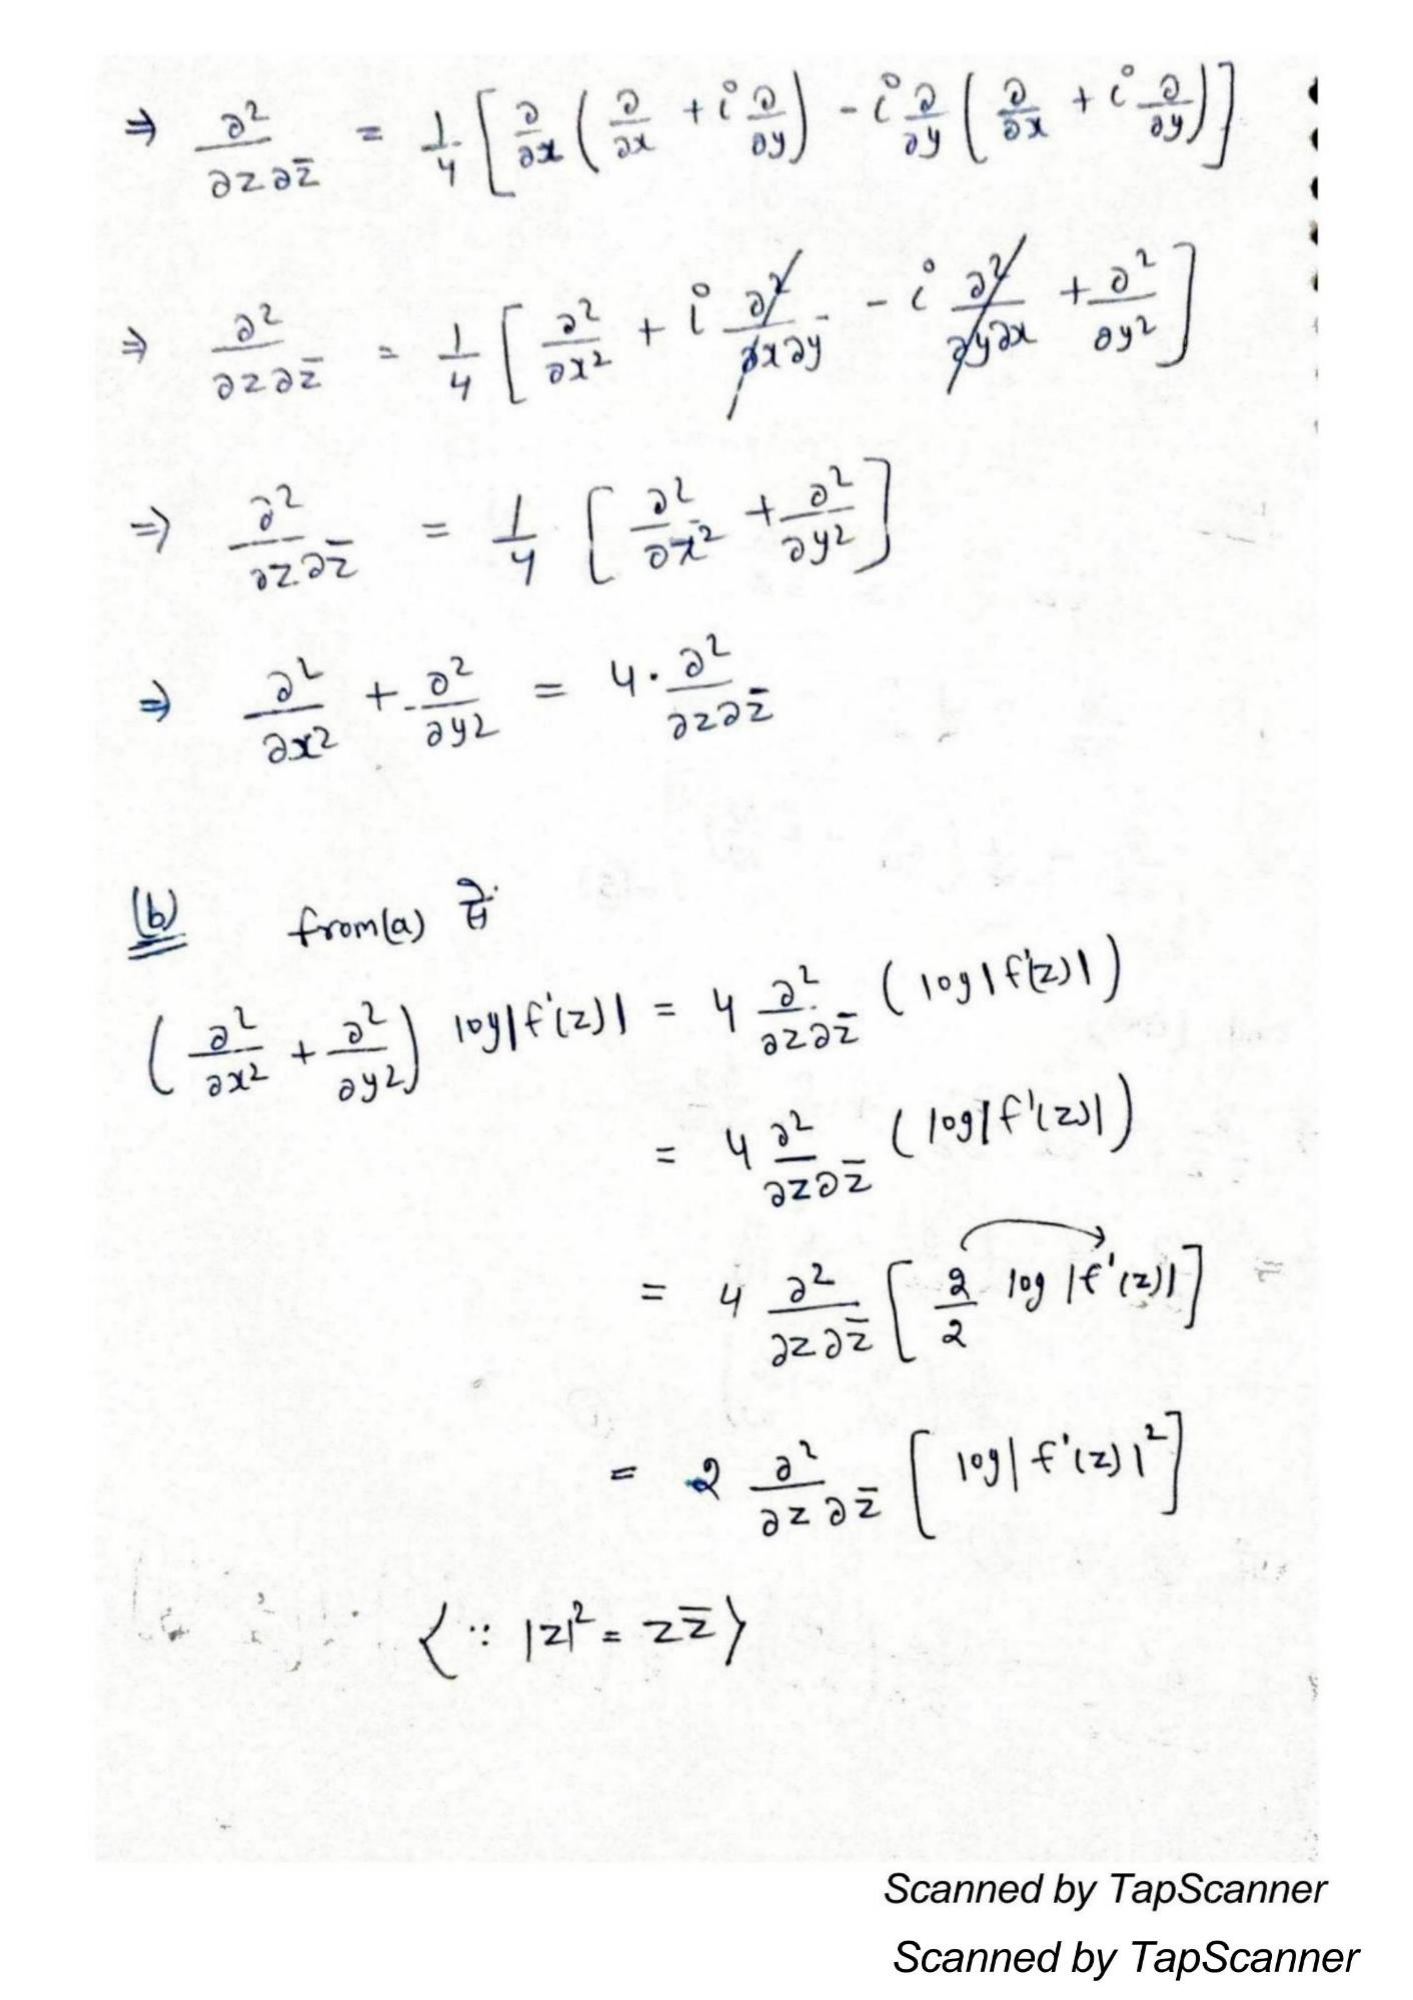 ⇒ ∂²/∂z∂z̄ = 1/4 [∂/∂x (∂/∂x + i ∂/∂y) - i ∂/∂y (∂/∂x + i ∂/∂y)]
⇒ ∂²/∂z∂z̄ = 1/4 [∂²/∂x² + i ∂²/∂x∂y - i ∂²/∂y∂x + ∂²/∂y²]
⇒ ∂²/∂z∂z̄ = 1/4 [∂²/∂x² + ∂²/∂y²]
⇒ ∂²/∂x² + ∂²/∂y² = 4 · ∂²/∂z∂z̄
(b) from (a) से
(∂²/∂x² + ∂²/∂y²) log|f'(z)| = 4 ∂²/∂z∂z̄ (log|f'(z)|)
= 4 ∂²/∂z∂z̄ (log|f'(z)|)
= 4 ∂²/∂z∂z̄ [2/2 log|f'(z)|]
= 2 ∂²/∂z∂z̄ [log|f'(z)|²]
⟨∵ |z|² = zz̄⟩
Scanned by TapScanner
Scanned by TapScanner